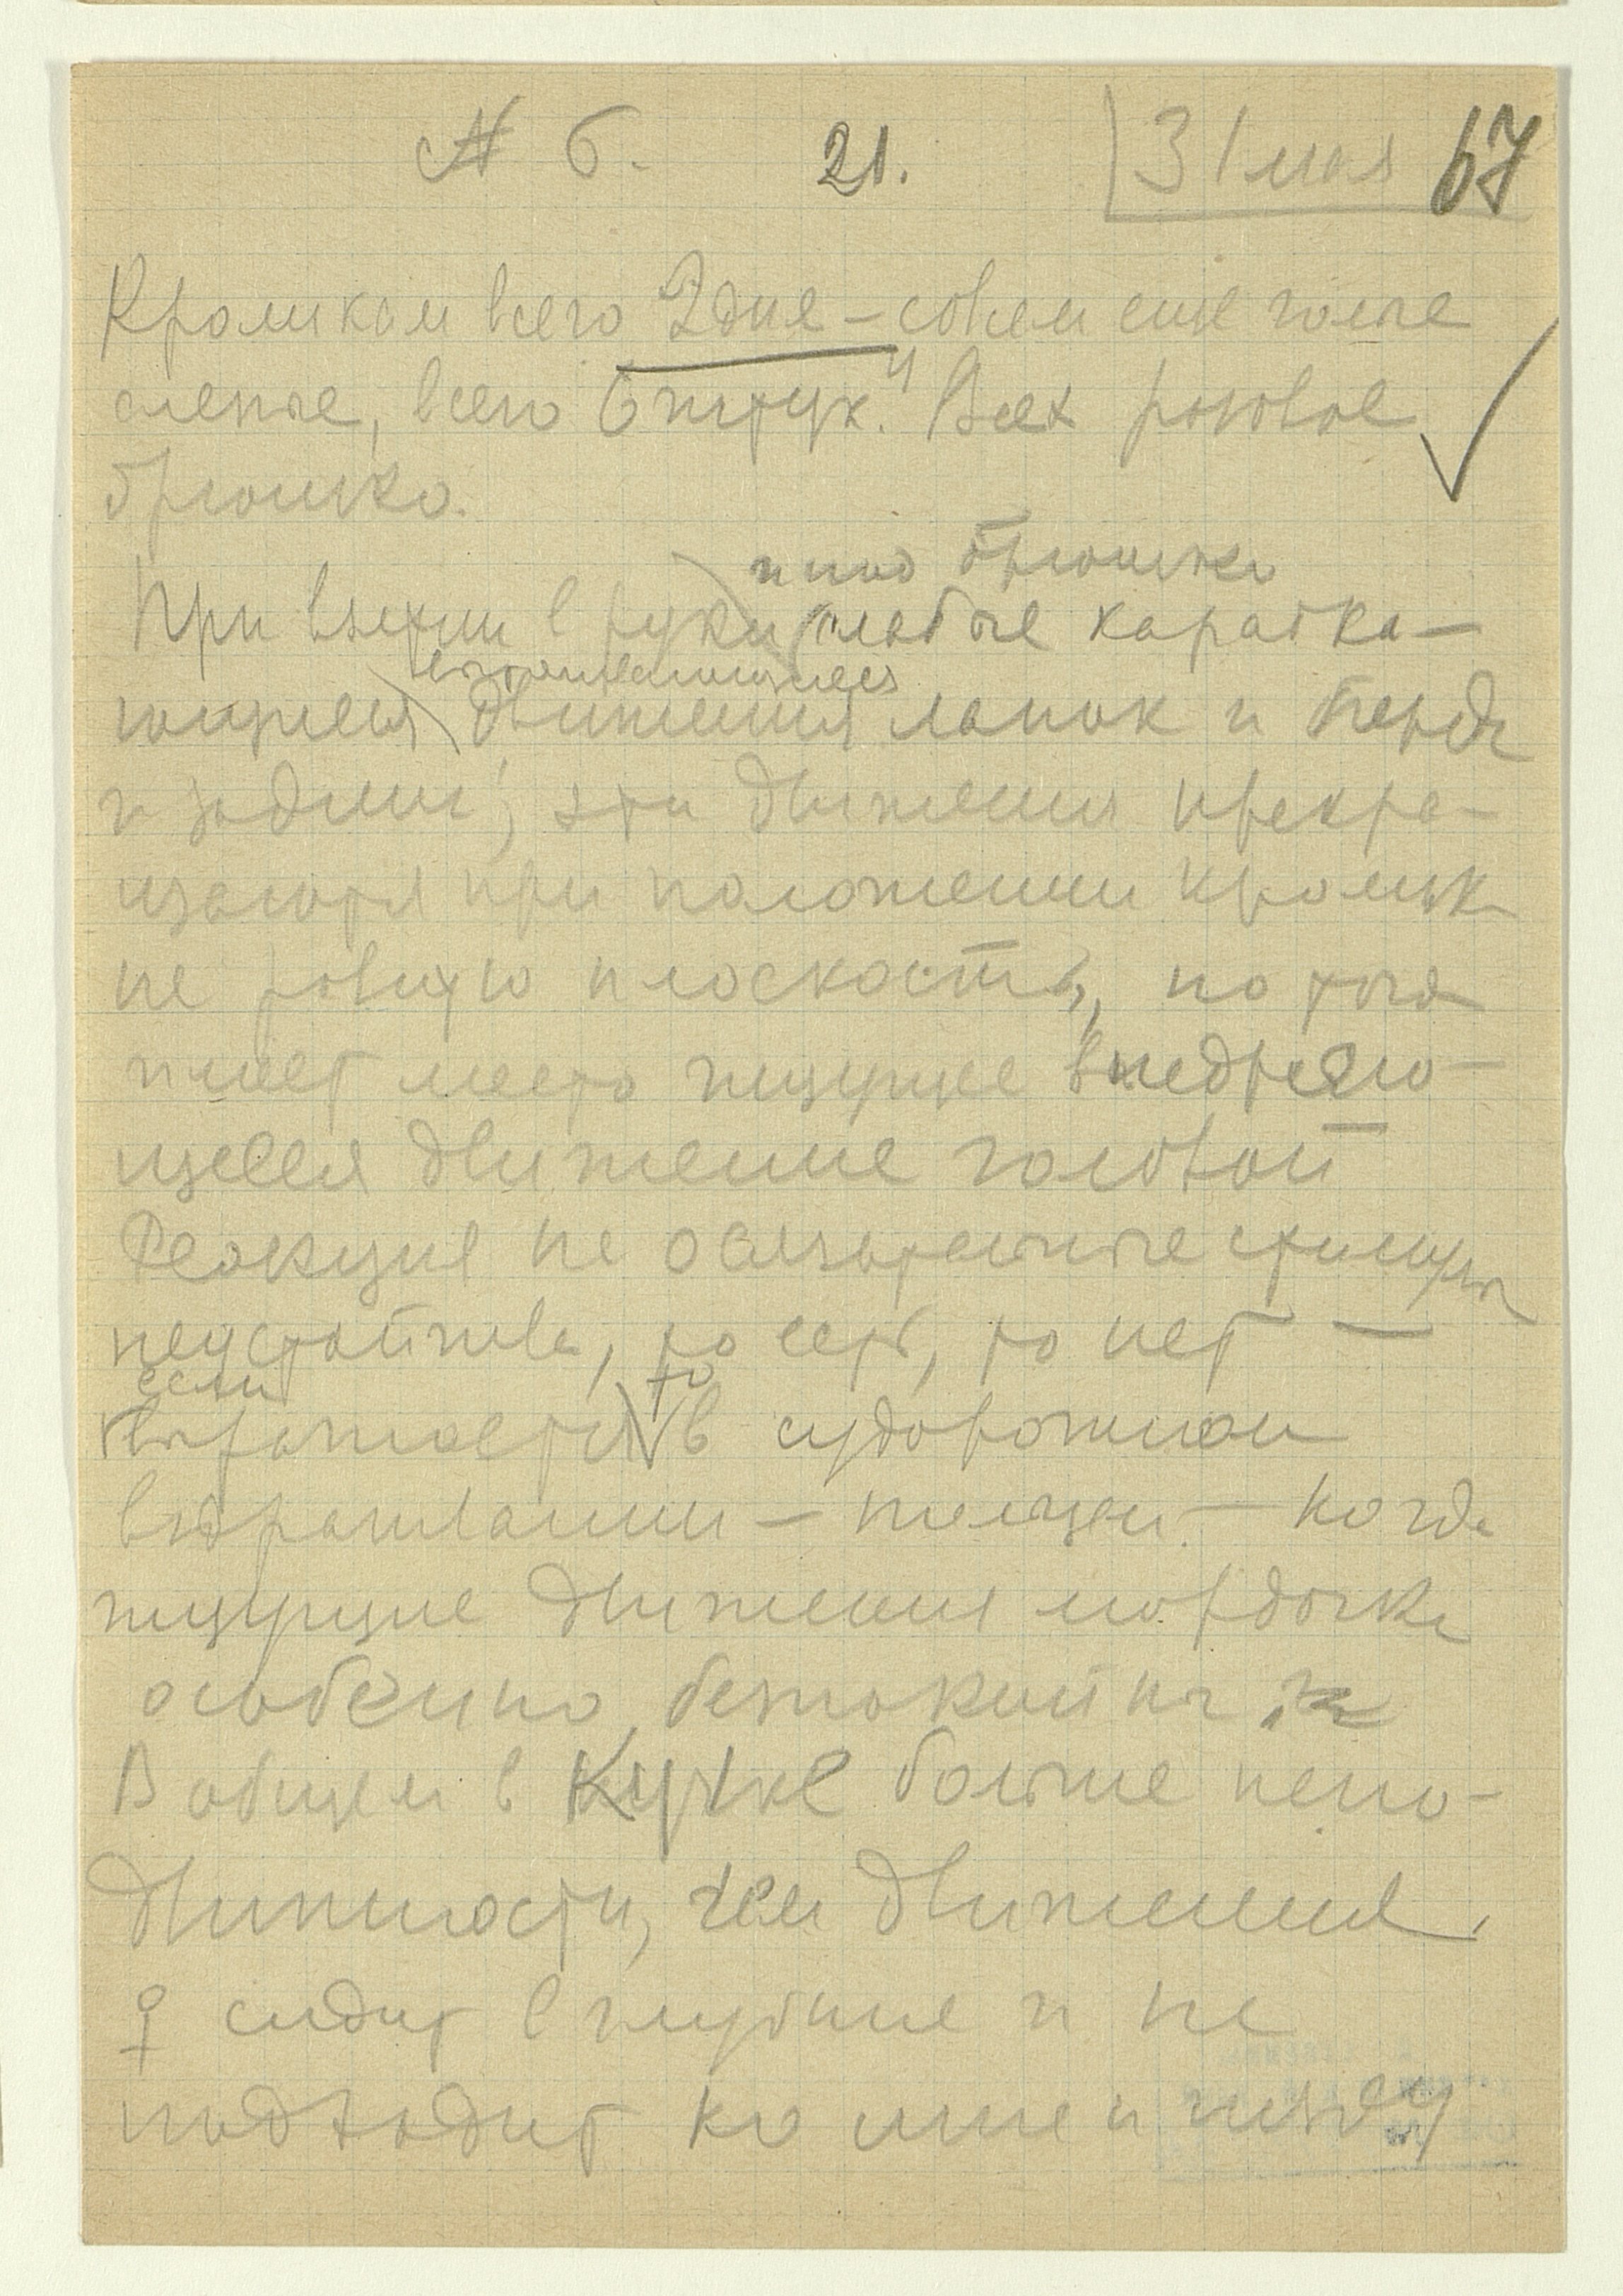 № 6. 21. 31 мая 67
Кроликам всего 2 дня – совсем еще голые
слепые, всего 6 штук. У Всех розовое
брюшко.
под брюшко
При взятии в руки слабые карабка-
выталкивающиеся
ющиеся движения лапок и перед.
и задних; эти движения прекра-
щаются при положении кролик
на ровную плоскость, но тогда
имеет место ищущие внедряю-
щееся движение головой
Реакция на осязательные стимулы
неустойчива, то есть, то нет —
если то
выражается в судорожном
вздрагивании – — когда
ищущие движения мордочки
особенно беспокойны
В общем в кучке больше непо-
движности, чем движения.
♀ сидит в глубине и не
подходит ко мне и гнезду